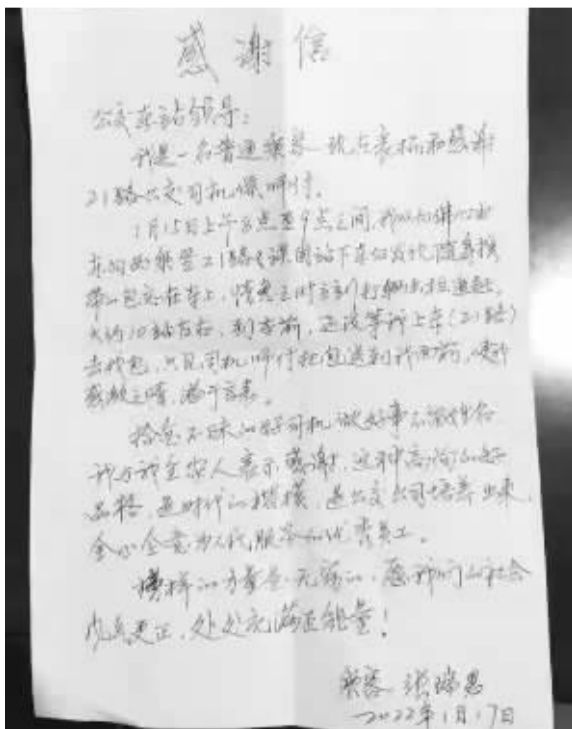 感谢信
公交车站领导：
我是一名普通乘客，现在表扬和感谢
21路公交司机 师付。
1月15日上午8点至9点之间，我从
乘坐21路 站下车后发现随身携
带的包忘在车上，情急之时立刻打辆出租追赶，
大约10站左右，到 前，还没等我上车（21路）
去找包，只见司机师付把包送到我面前，使我
感激之情，溢于言表。
拾金不昧的好司机做好事不留姓名
我与我全家人表示感谢，这种高尚的好
品格，是时代的楷模，是公交公司培养出来，
全心全意为人民服务的优秀员工。
榜样的力量是无穷的，愿我们的社会
风气更正，处处充满正能量！
乘客 张瑞
2022年1月17日